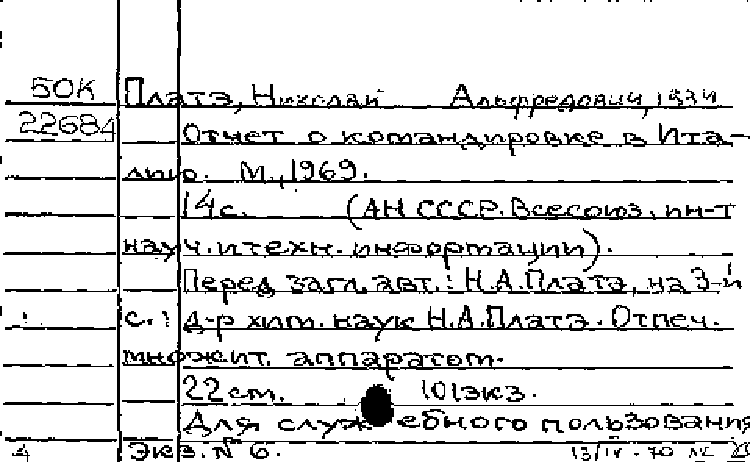 50К Платэ, Николай Альфредович, 1934
22684 Отчет о командировке в Ита-
лию. М., 1969.
14с. (АН СССР. Всесоюз. ин-т
науч. и техн. информации).
Перед загл. авт.: Н.А.Платэ, на 3-й
с.: д-р хим. наук Н.А.Платэ. Отпеч.
множит. аппаратом.
22см. 101экз.
Для служебного пользования
4 Экз. № 6. 13/IV-70